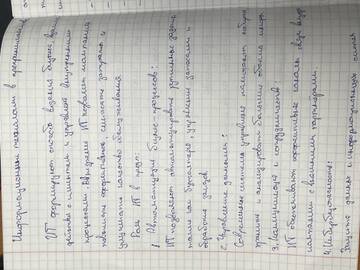 Информационные технологии в предприятии
ИТ формируют способ ведения бизнеса, взаимо
действия с клиентами и управления внутренними
процессами. Внедрение ИТ позволяет компаниям
повысить эффективность, снизить затраты и
улучшить качество обслуживания
Роль ИТ в
1. Автоматизация бизнес-процессов:
ИТ позволяет автоматизировать рутинные задачи
такие как бухгалтерия, управление запасами и
обработка заказов
2. Управление данными:
Современные системы управления позволяют собирать,
хранить и анализировать большие объёмы инфор.
3. Коммуникация и сотрудничество:
ИТ обеспечивают эффективные каналы связи внутри
компании и с внешними партнёрами.
4. Кибербезопасность:
Защита данных и информационных систем